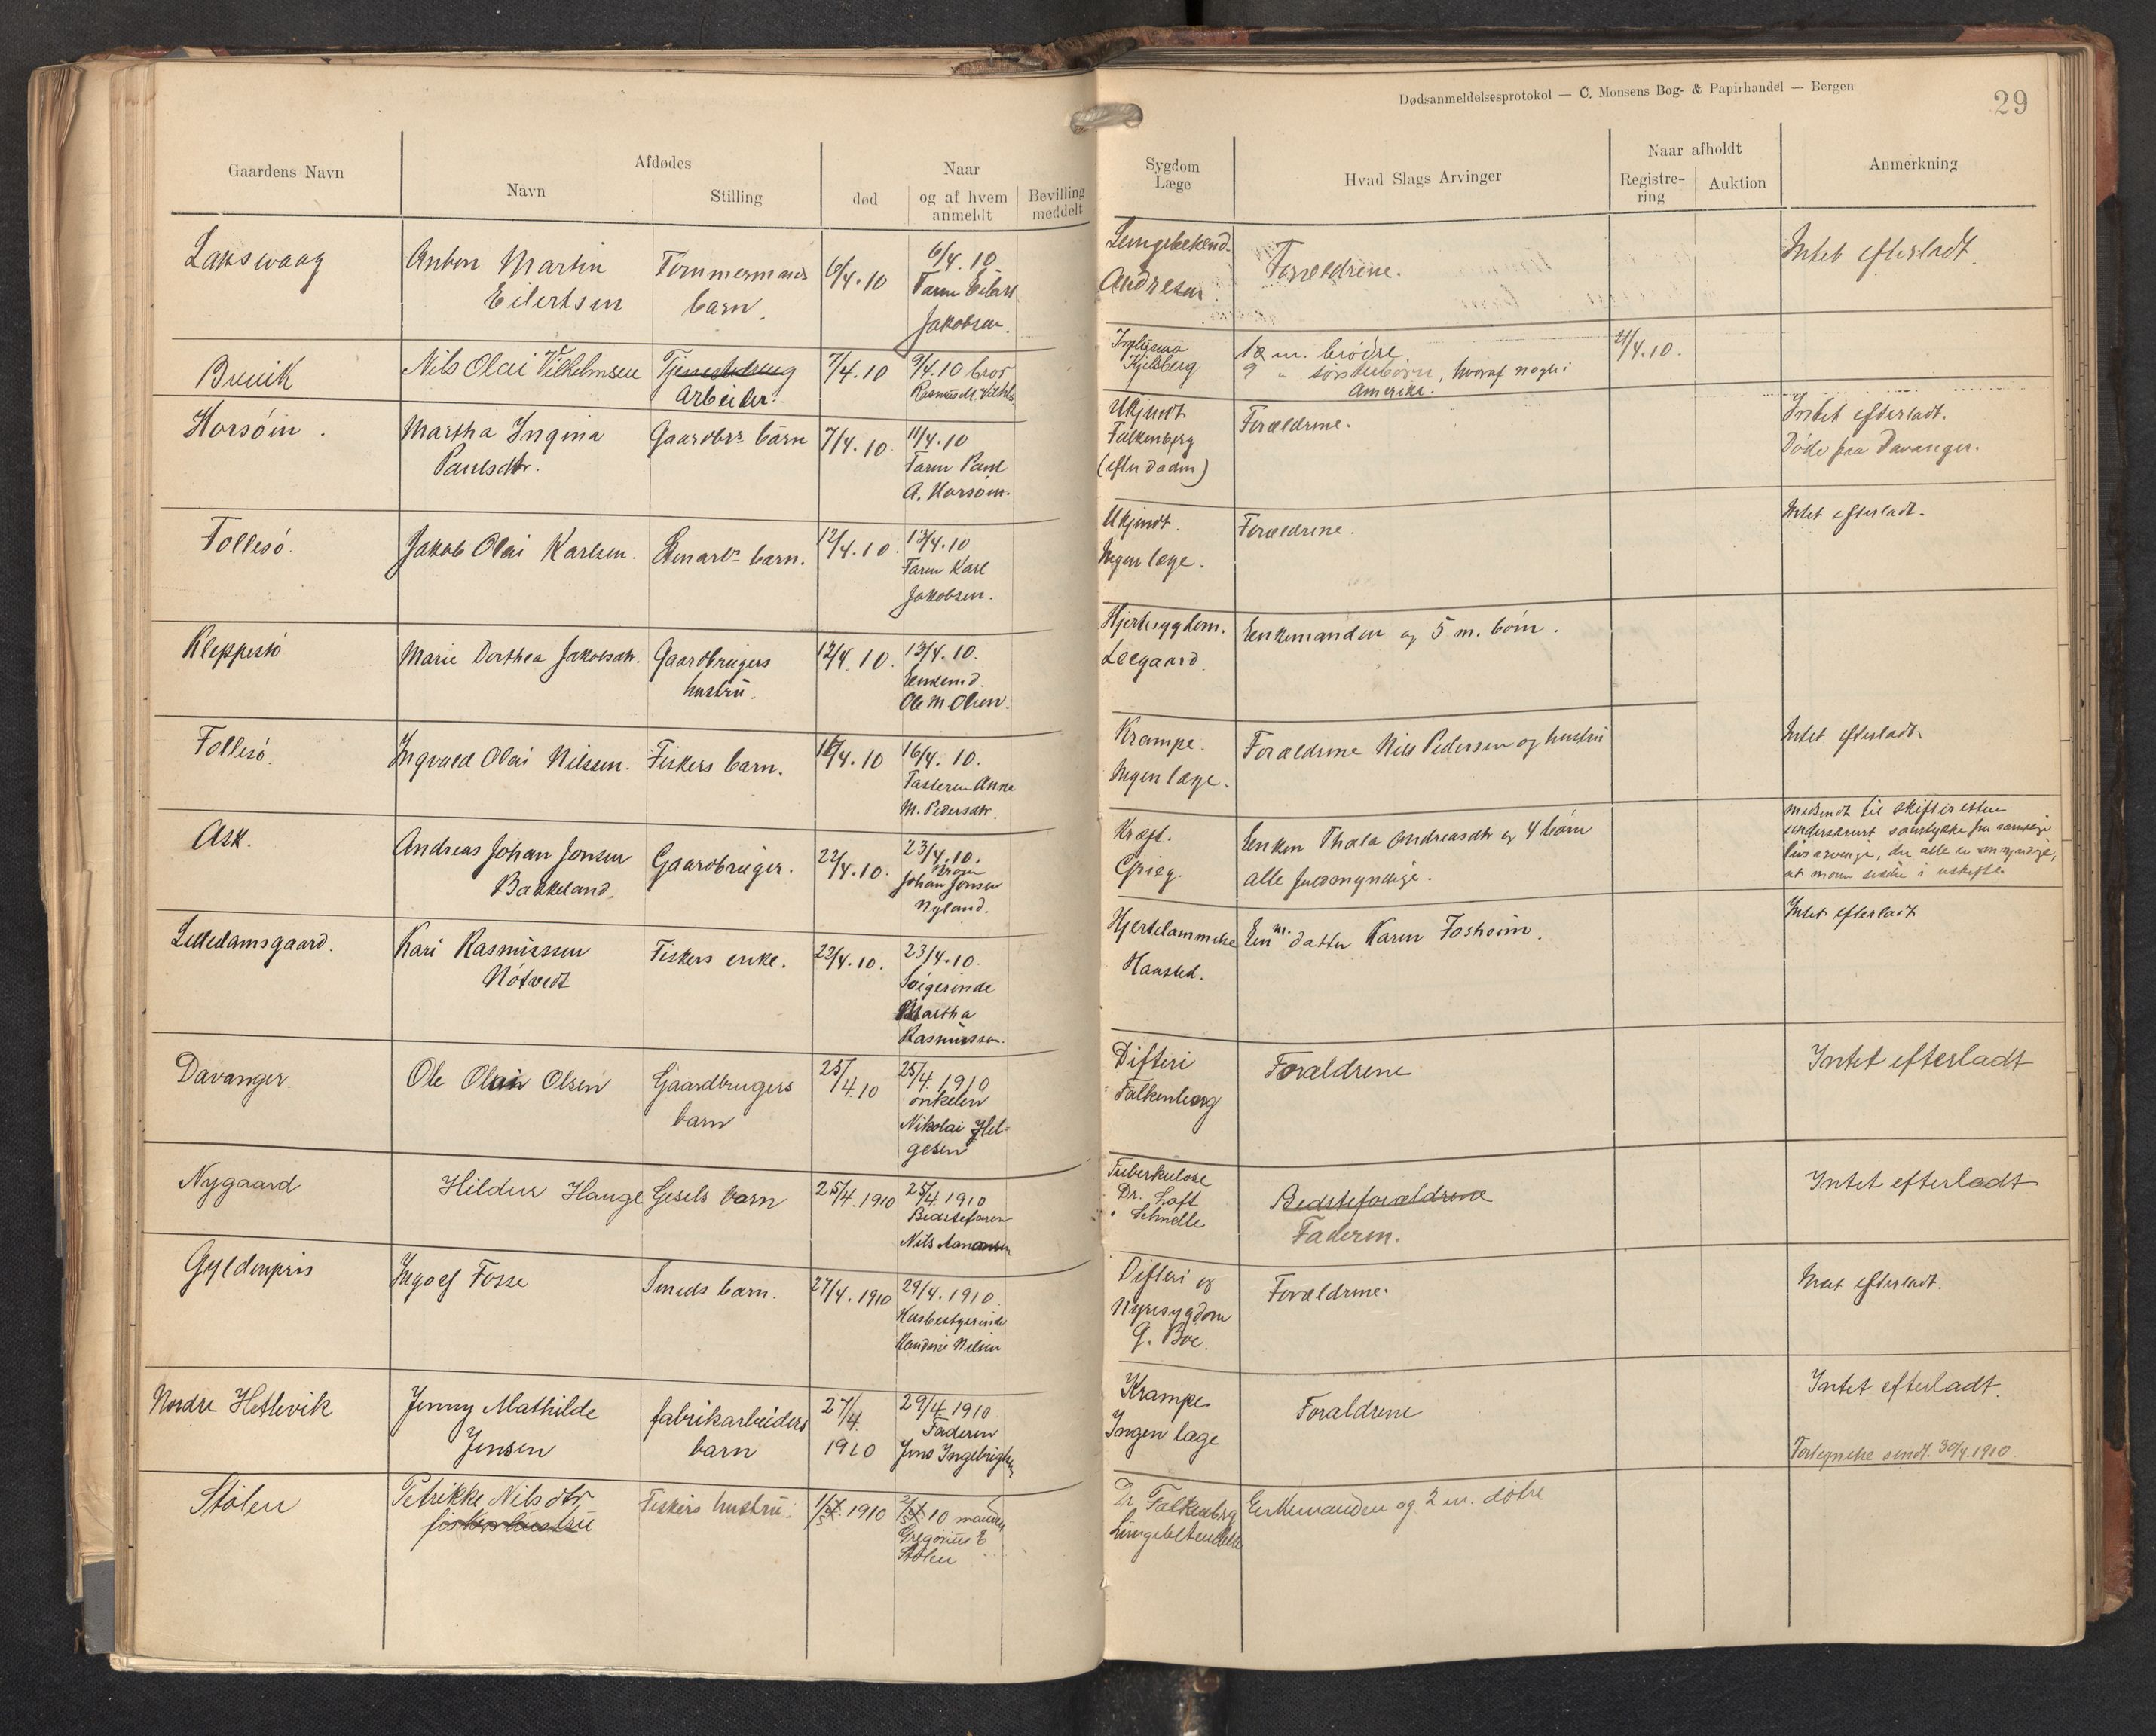 Dødsanmeldelsesprotokol — C. Monsens Bog- & Papirhandel — Bergen
29
Gaardens Navn
Afdødes
Navn
Stilling
Naar
død
og af hvem
anmeldt
Bevilling
meddelt
Sygdom
Læge
Hvad Slags Arvinger
Naar afholdt
Registre-
ring
Auktion
Anmerkning
Laksvaag
Anton Martin
Eilertsen
Tømmermands
barn.
6/4.10
6/4.10
Faren Eilert
Jakobsen.
Lungebetænd.
Andresen.
Forældrene.
Intet efterladt.
Brevik
Nils Olai Vilhelmsen
Tjenestedreng
Arbeider.
7/4.10
9/4.10 bror
Rasmus M. Vilhls.
Kjelsberg
m. brødre.
9 " søskendebørn, hvoraf nogle i
Amerika.
21/4.10.
Horsøien.
Martha Ingina
Paulsdtr.
Gaardbrs barn
7/4.10.
11/4.10
Faren Paul
A. Horsøien.
Ukjendt
Falkenberg
(efter døden)
Forældrene.
Intet efterladt.
Døde paa Davanger.
Follesø.
Jakob Olai Karlsen.
barn.
12/4.10.
13/4.10
Faren Karl
Jakobsen.
Ukjendt.
Ingen læge.
Forældrene.
Intet efterladt.
Kleppestø
Marie Dorthea Jakobsdtr.
Gaardbrugers
hustru.
12/4.10.
13/4.10.
Enkemd.
Ole M. Olsen.
Hjertesygdom.
Leegaard.
Enkemanden og 5 m. børn.
Follesø.
Ingvald Olai Nilssen.
Fiskers barn.
16/4.10
16/4.10.
Fasteren Anna
M. Pedersdtr.
Krampe.
Ingen læge.
Forældrene Nils Pedersen og hustru
Intet efterladt.
Ask.
Andreas Johan Jonsen
Bakkeland.
Gaardbruger.
22/4.10.
23/4.10.
Broren
Johan Jonsen
Nyland.
Kræft.
Grieg.
Enken Thala Andreasdtr og 4 børn
alle fuldmyndige.
indsendt til skifteretten
underskrevet samtykke fra samtlige
livsarvinge, der alle er myndige,
at moren sidder i uskifte.
Lilledamsgaard.
Kari Rasmussen
Nøtvedt
Fiskers enke.
22/4.10.
23/4.10.
Svigerinde
Martha
Rasmussen.
Hjertelammelse
Hansted.
En m. datter Karen Fosheim.
Intet efterladt
Davanger.
Ole Olai Olsen
Gaardbrugers
barn
25/4.10
25/4.1910
onkelen
Nikolai Hel-
gesen
Difteri
Falkenberg
Forældrene
Intet efterladt
Nygaard
Hildur Hauge
Gesels barn
25/4.1910
25/4.1910
Bedstefaren
Nils Amansen
Tuberkulose
Dr. Loft
" Schnelle
Bedsteforældrene
Faderen.
Intet efterladt
Gyldenpris
Ingolf Fosse
Smeds barn.
27/4.1910
29/4.1910.
Husbestyrerinde
Nilsen
Difteri og
Nyresygdom
G. Boe.
Forældrene.
Intet efterladt.
Nordre Hetlevik
Jenny Mathilde
Jensen
fabrikarbeiders
barn
27/4.
1910
29/4 1910
Faderen
Jens Ingebrigtsen
Krampe
Ingen læge
Forældrene
Intet efterladt.
Fortegnelse sendt. 30/4.1910.
Stølen
Petrikke Nilsdtr
fiskerhustru
Fiskers hustru.
1/5.1910
2/5 10 manden
Gregorius E
Stølen
Dr Falkenberg
Lungebetændelse
Enkemanden og 2 m. døtre